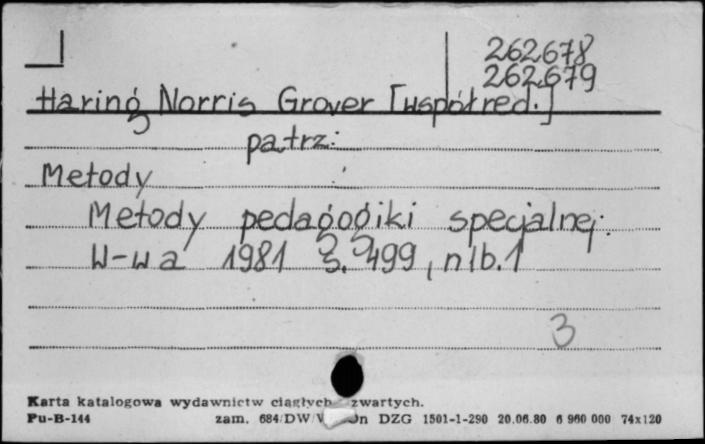 262678
262679
Haring Norris Grover [współred.]
patrz:
Metody
Metody pedagogiki specjalnej.
W-wa 1981 s. 499, nlb. 1
3
Karta katalogowa wydawnictw ciągłych zwartych.
Pu-B-144 zam. 684/DW/V DZG 1501-1-290 20.06.80 6 960 000 74x120